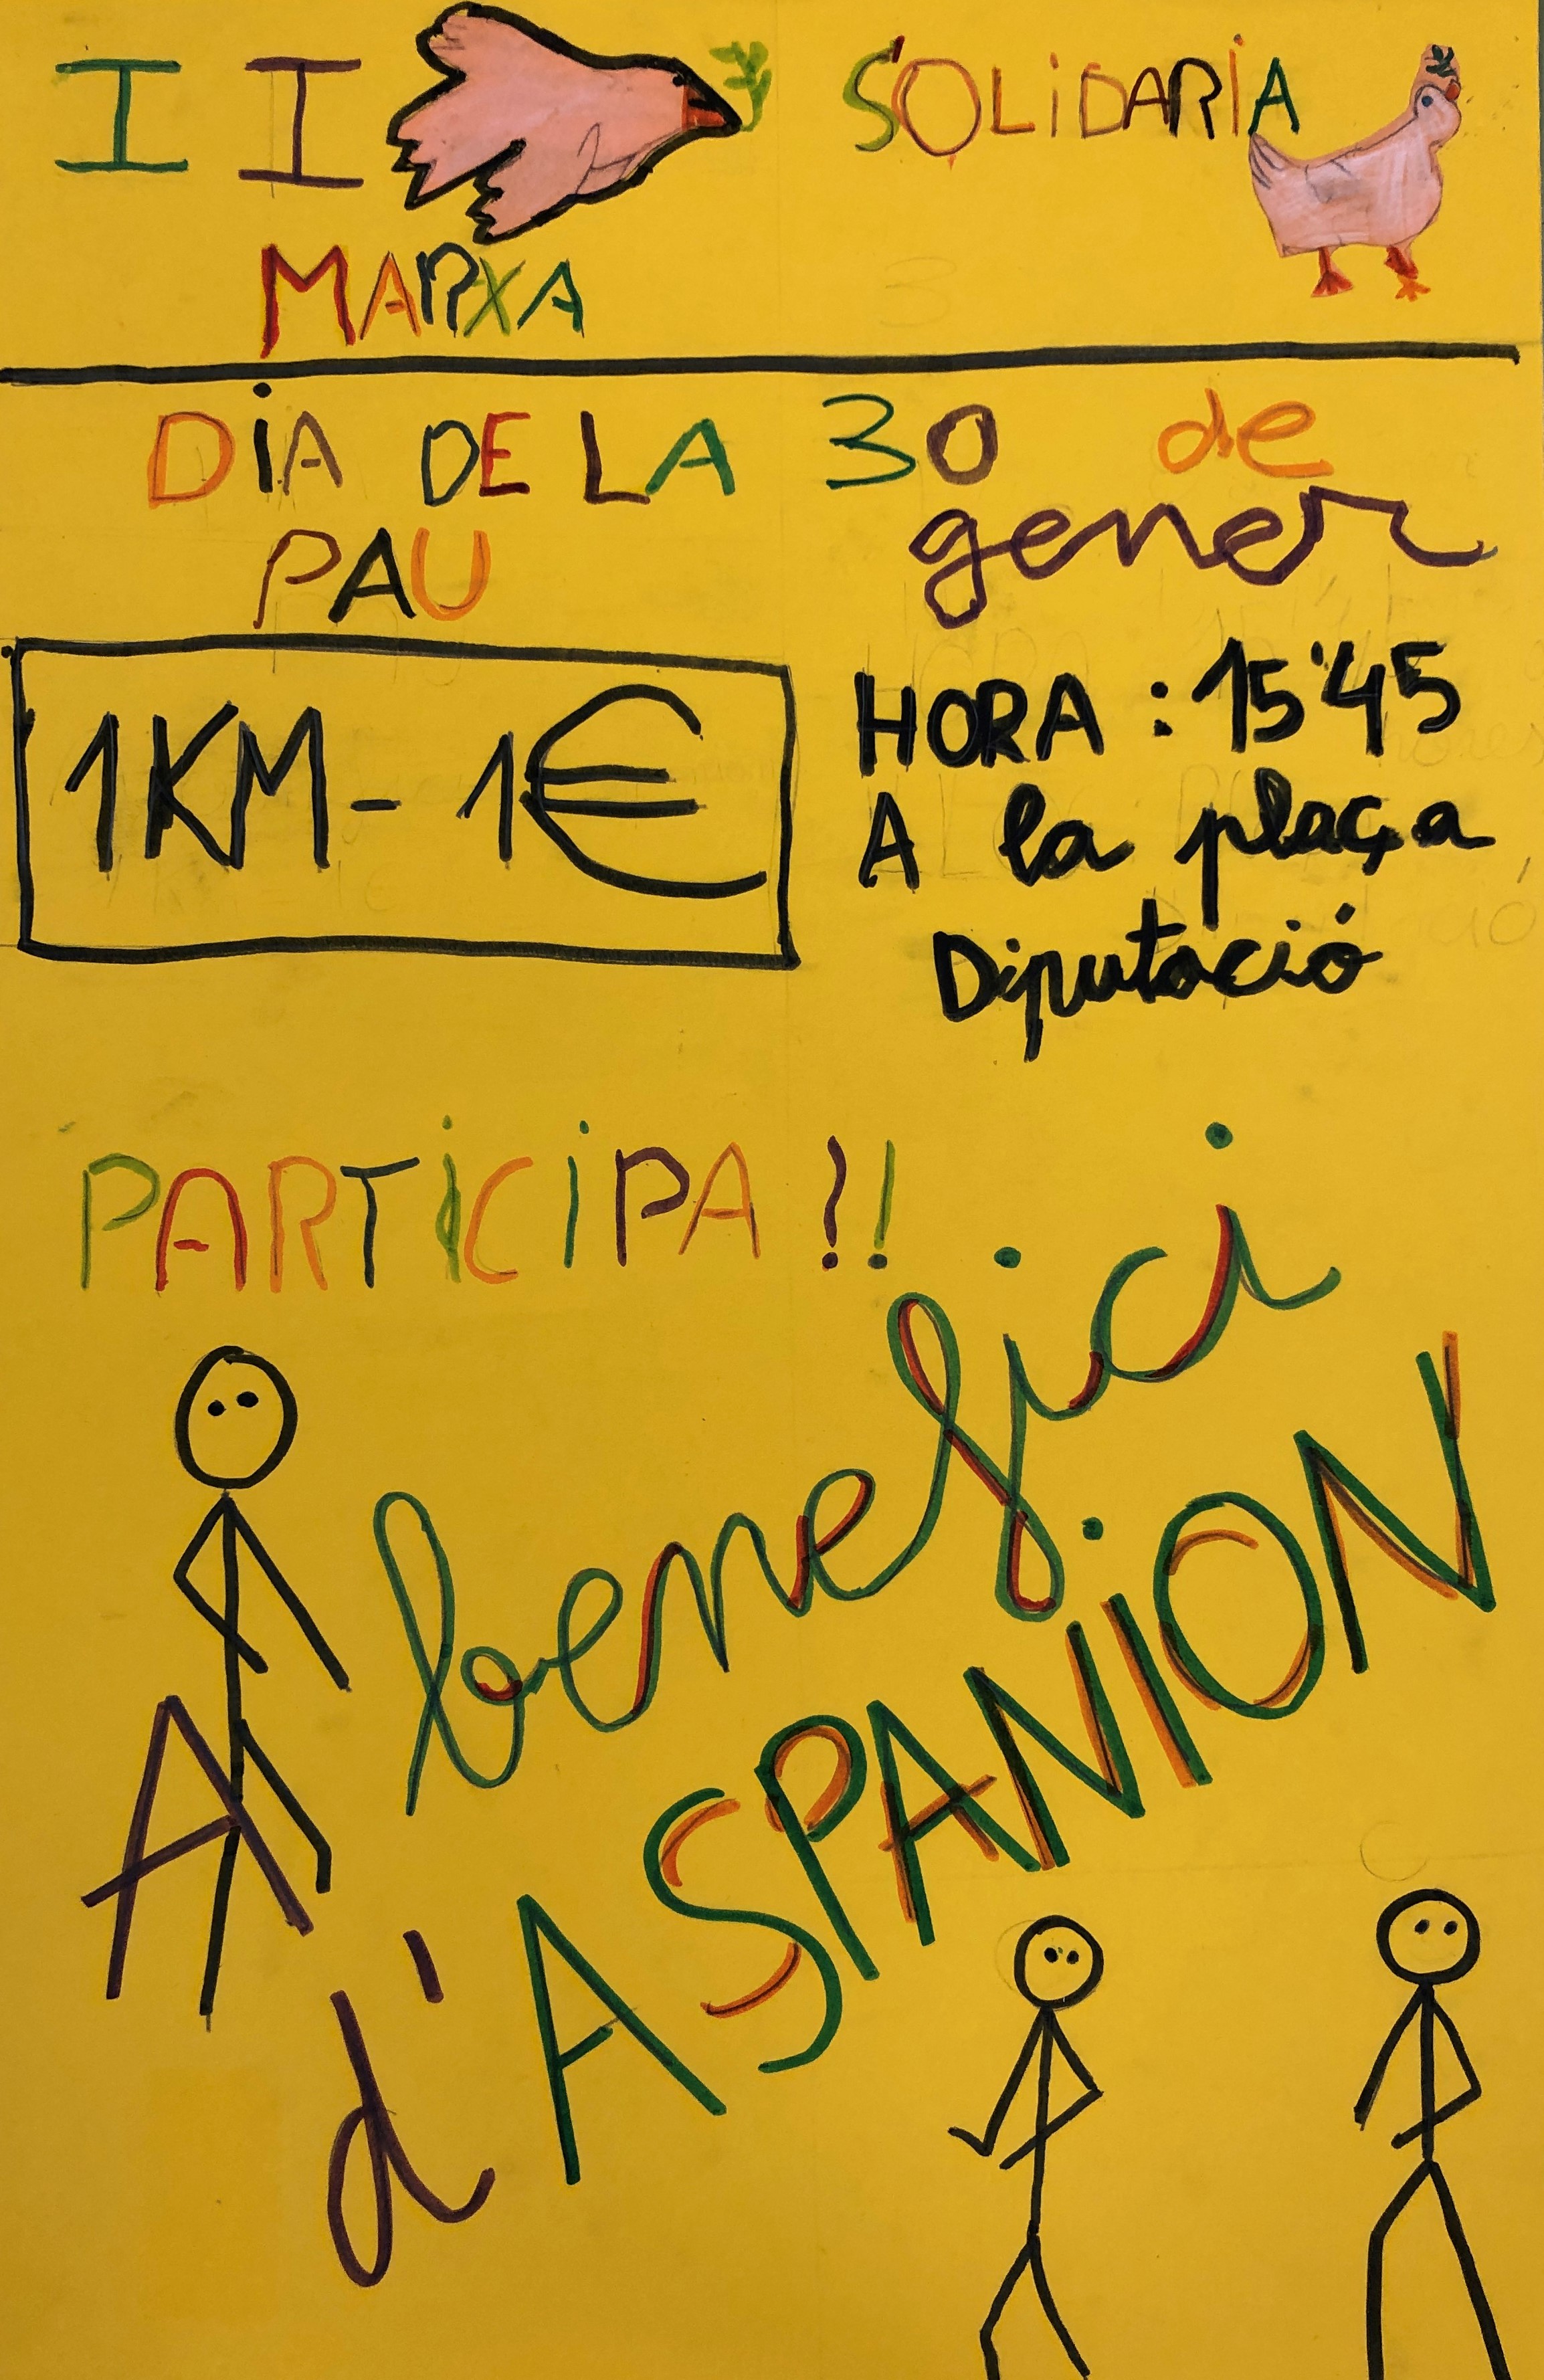 II SOLIDARIA
MARXA
DIA DE LA
PAU
30 de
gener
1KM - 1€
HORA : 15'45
A la plaça
Diputació
PARTICIPA!!
A benefici
d'ASPANION